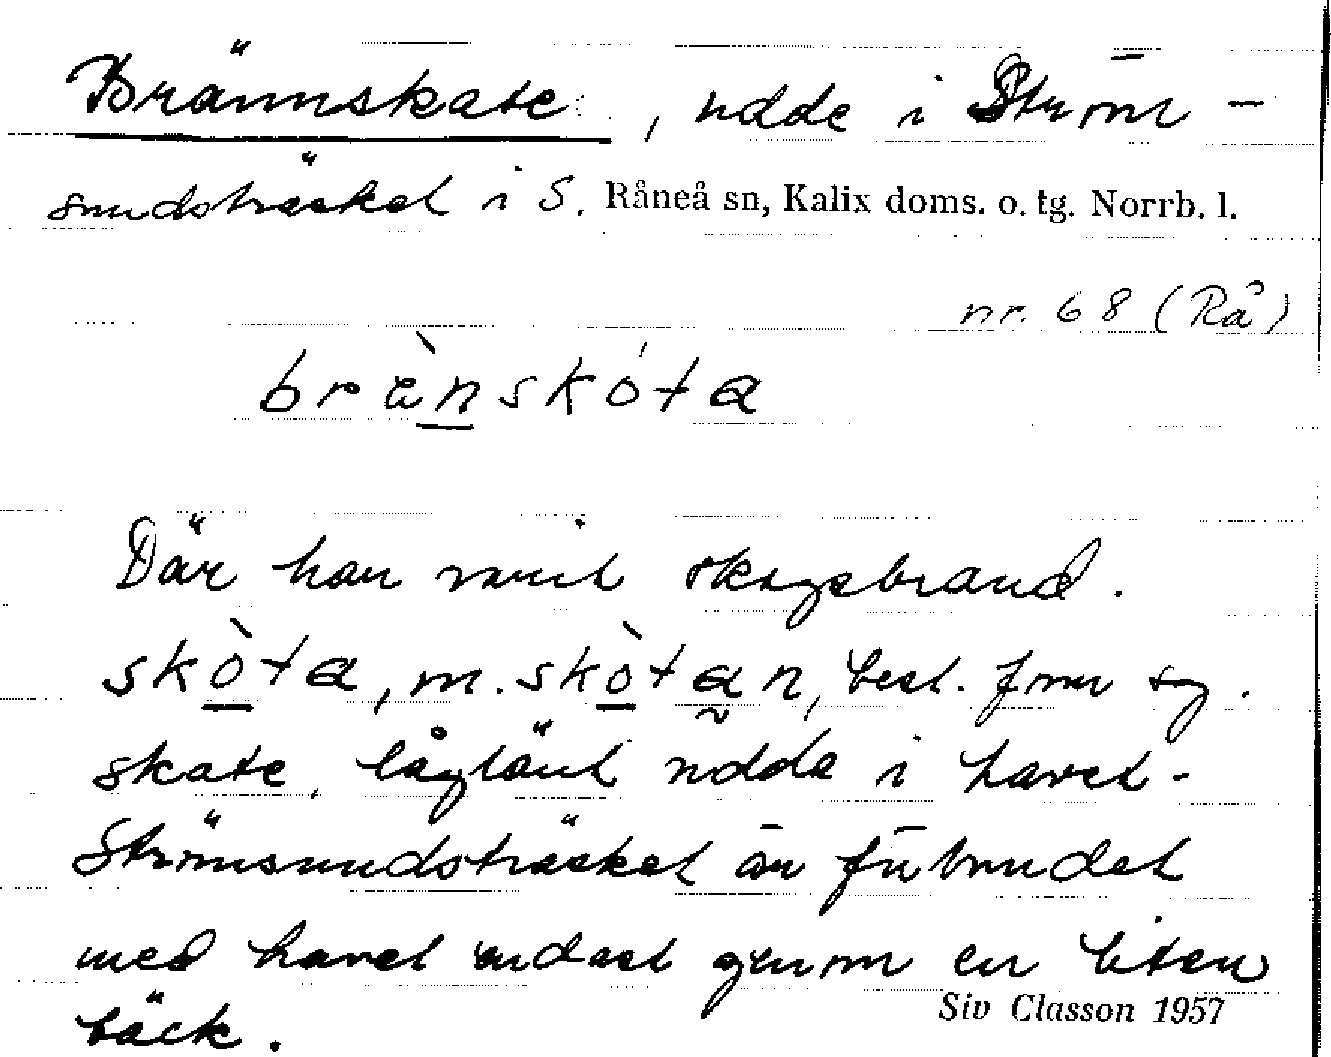 Brännskate, udde i Ström-
sundsträsket i S. Råneå sn, Kalix doms. o. tg. Norrb. l.
nr. 68 (Rå)
brä̀nskóta
Där har varit skogsbrand.
skò̱ta, m. skò̱ta̰n, best. form sg.
skate, låglänt udde i havet-
Strömsundsträsket är förbundet
med havet endast genom en liten
bäck.
Siv Classon 1957